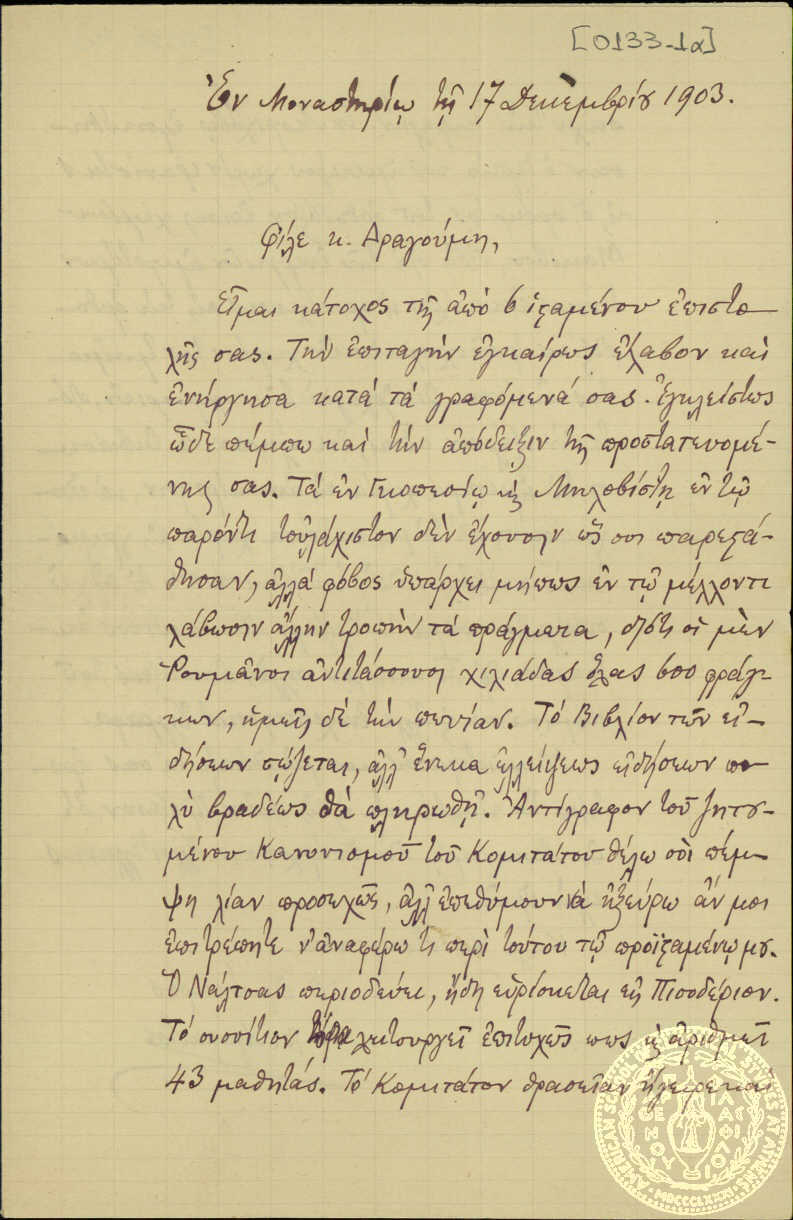 [0133-1α]
Ἐν Μοναστηρίῳ τῇ 17 Δεκεμβρίου 1903.
Φίλε κ. Δραγούμη,
Εἶμαι κάτοχος τῆς ἀπὸ 6 ἱσταμένου ἐπιστο-
λῆς σας. Τὴν ἐπιταγὴν ἐγκαίρως ἔλαβον καὶ
ἐνήργησα κατὰ τὰ γραφόμενά σας. Ἐγκλείστως
ὧδε πέμπω καὶ τὴν ἀπόδειξιν τῆς προστατευομέ-
νης σας. Τὰ ἐν Γκιοπεσίῳ κ Μηλοβίστῃ ἐν τῷ
παρόντι τοὐλάχιστον δὲν ἔχουσιν ὥς σοι παρεστά-
θησαν, ἀλλὰ φόβος ὑπάρχει μήπως ἐν τῷ μέλλοντι
λάβωσιν ἄλλην τροπὴν τὰ πράγματα, διότι οἱ μὲν
Ῥουμᾶνοι ἀντιτάσσουσι χιλιάδας ὅλας 600 φράγ-
κων, ἡμεῖς δὲ τὴν πενίαν. Τὸ Βιβλίον τῶν εἰ-
δήσεων σῴζεται, ἀλλ' ἕνεκα ἐλλείψεως εἰδήσεων πο
λὺ βραδέως θὰ πληρωθῇ. Ἀντίγραφον τοῦ ζητου-
μένου Κανονισμοῦ τοῦ Κομιτάτου θέλω σοὶ πέμ-
ψῃ λίαν προσεχῶς, ἀλλ' ἐπεθύμουν νὰ ἠξεύρω ἄν μοι
ἐπιτρέπητε ν' ἀναφέρω τι περὶ τούτου τῷ προϊσταμένῳ μου.
Ὁ Νάλτσας περιοδεύει, ἤδη εὑρίσκεται εἰς Πισοδέριον.
Τὸ συσσίτιον λειτουργεῖ ἐπιτυχῶς πως κ ἀριθμεῖ
43 μαθητάς. Τὸ Κομιτάτον θρασεῖαν ἤγειρε καὶ
AMERICAN SCHOOL OF CLASSICAL STUDIES AT ATHENS
MDCCCLXXXI